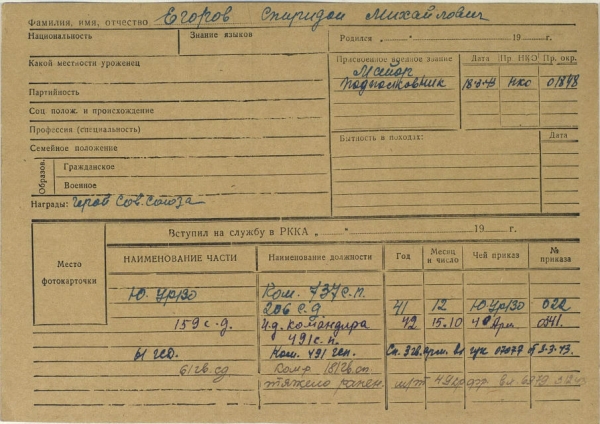 Фамилия, имя, отчество Егоров Спиридон Михайлович
Национальность Знание языков Родился „ “ 19 г.
Какой местности уроженец Присвоенное военное звание Дата Пр. НКО Пр. окр.
Майор
Подполковник 18-3-43 НКО 01898
Партийность
Соц полож. и происхождение
Профессия (специальность)
Семейное положение Бытность в походах: Дата
Образов. Гражданское
Военное
Награды: Герой Сов. Союза
Вступил на службу в РККА „ “ 19 г.
Место фотокарточки
НАИМЕНОВАНИЕ ЧАСТИ Наименование должности Год Месяц и число Чей приказ № приказа
Ю. УрВО Ком. 737 с.п.
206 с.д. 41 12 Ю. УрВО 022
159 с.д. И.д. командира 42 15.10 Арм. 0341.
491 с.п.
61 гсд. Ком. 491 Сп. арм. 07079 3-3-43.
61 гв. сд Ком-р 181 гв. сп.
тяжело ранен.